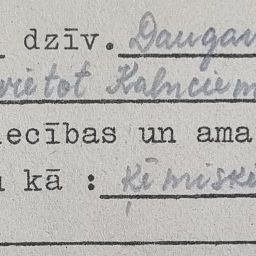 dzīv. Daugav
vietot Kalnciem
iecības un ama
kā : Ķēmiskē